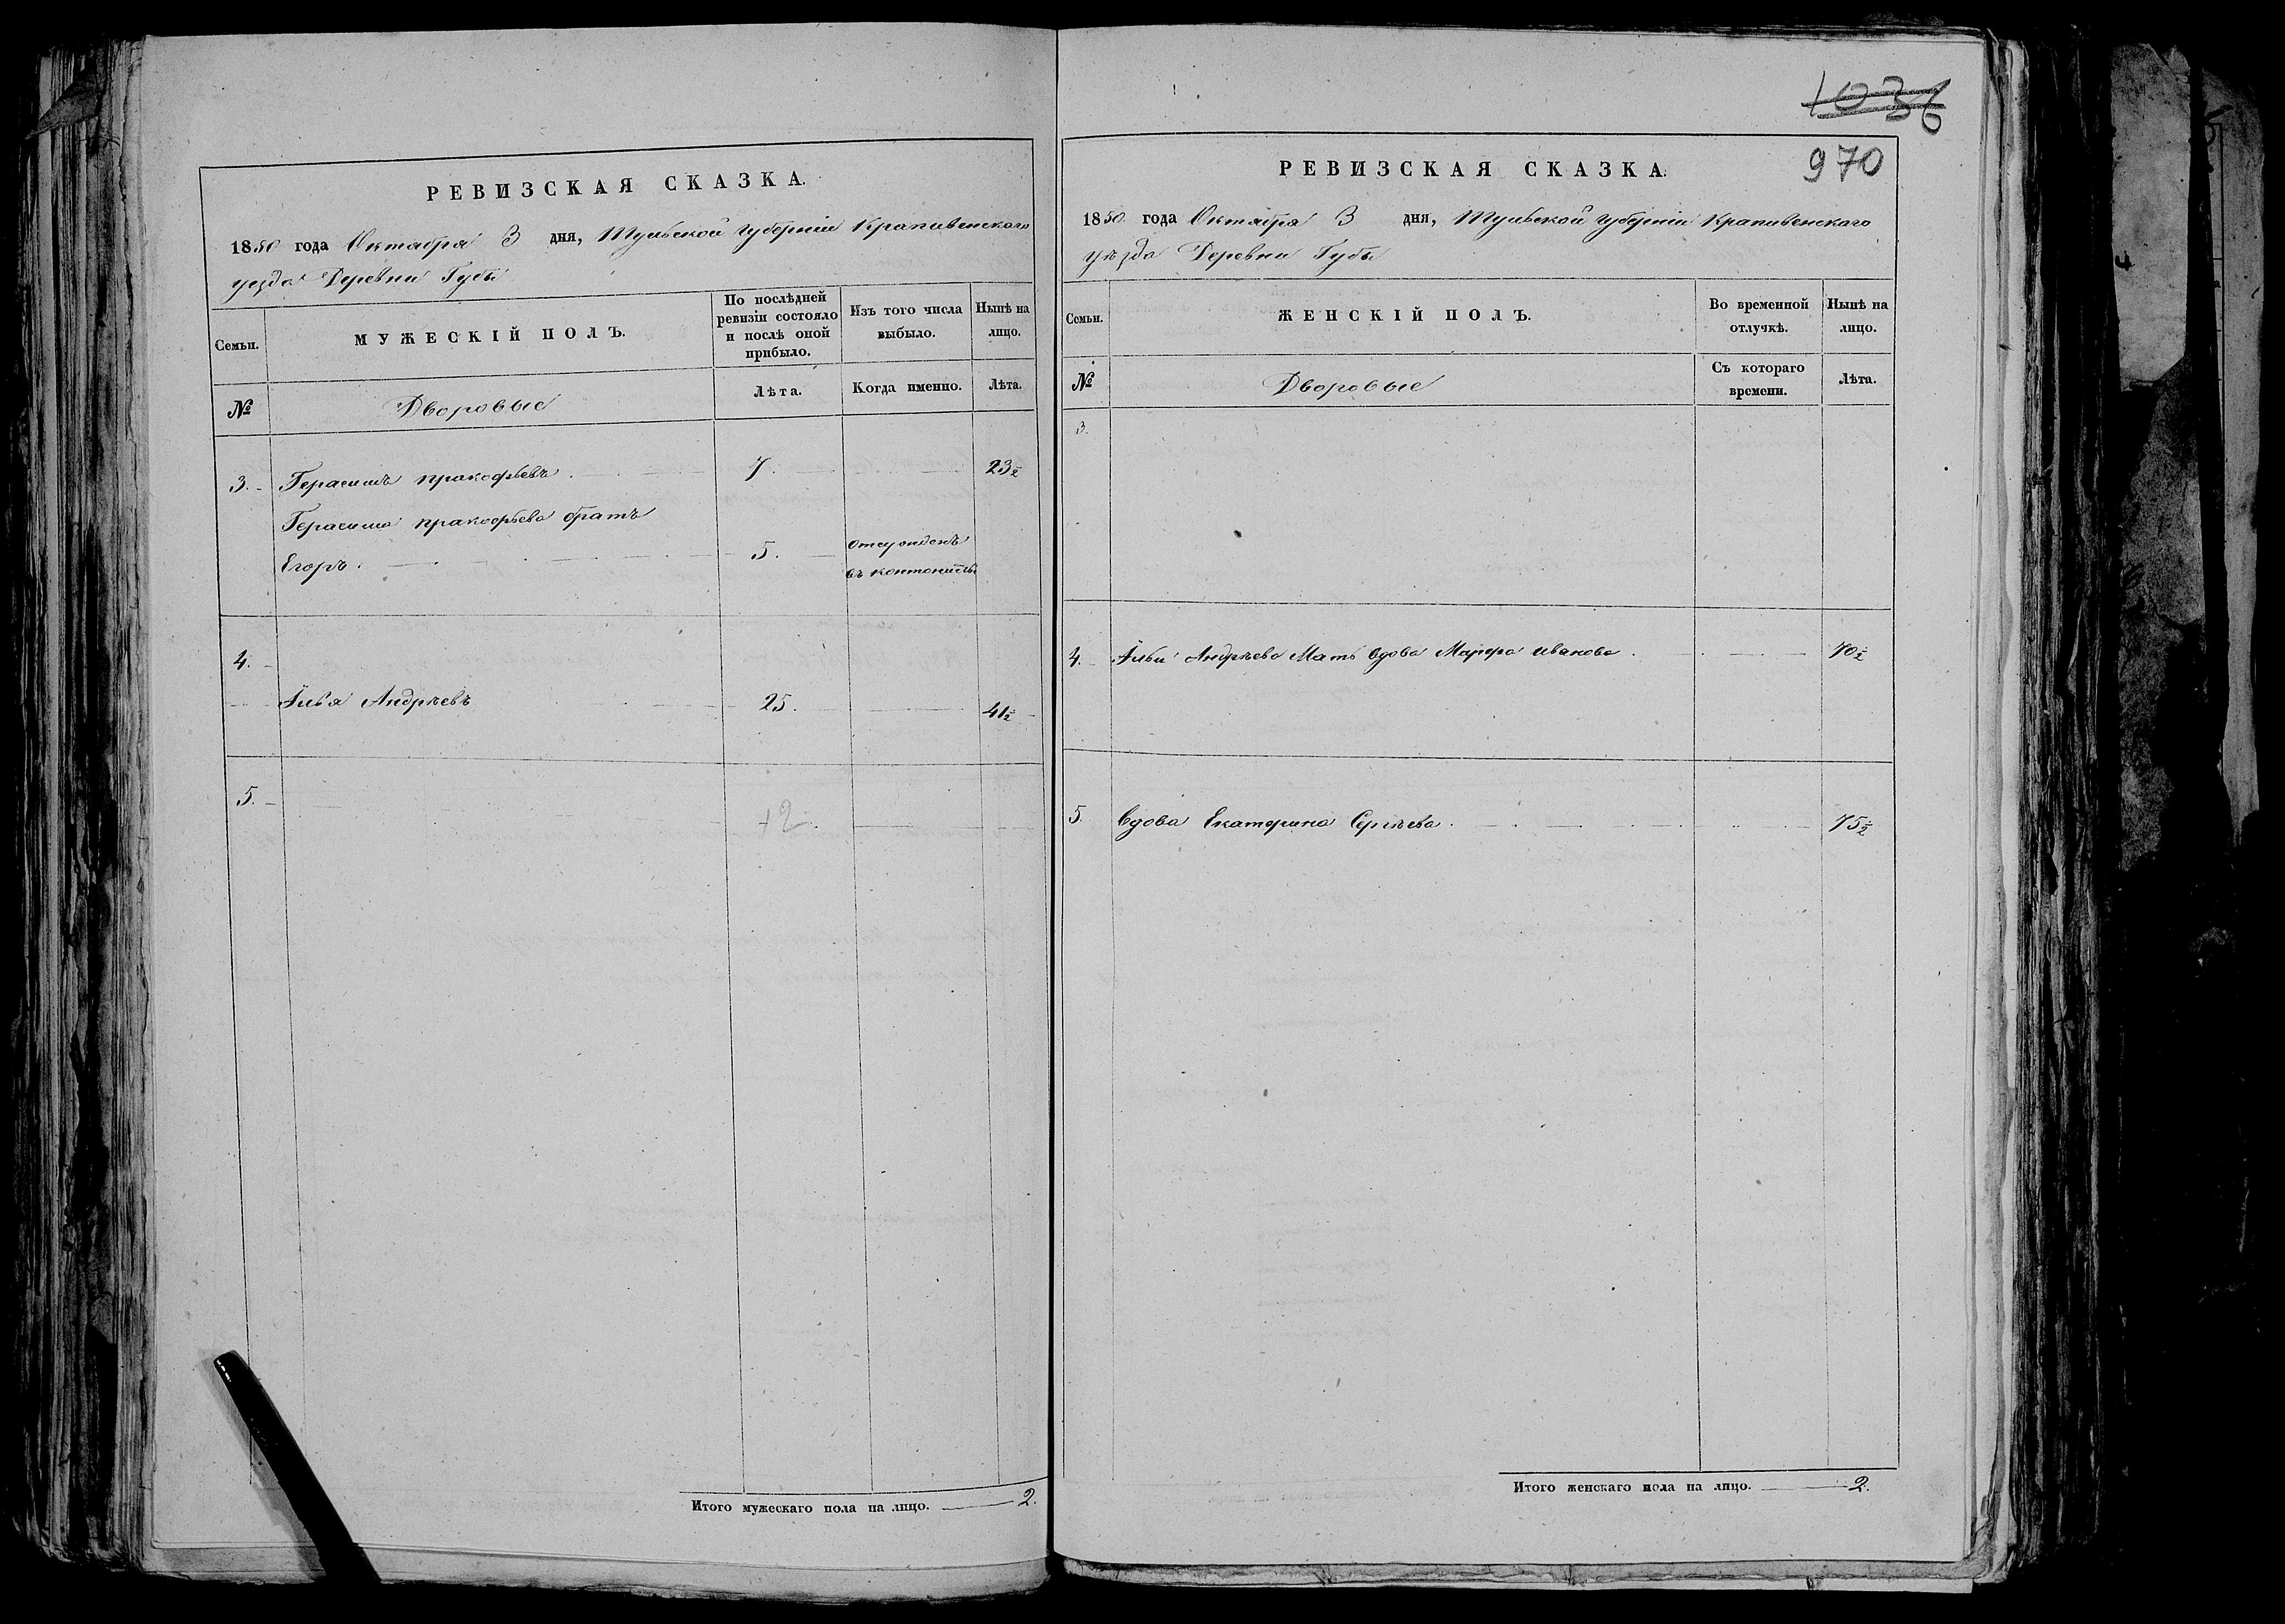 РЕВИЗСКАЯ СКАЗКА.
1850 года Октября 3 дня, Тульской губерніи Крапивенскаго
уезда Деревни Губы
Семьи.
МУЖЕСКІЙ ПОЛЪ.
По послѣдней ревизіи состояло и послѣ оной прибыло.
Изъ того числа выбыло.
Нынѣ на лицо.
№
Дворовые
Лѣта.
Когда именно.
Лѣта.
3. Герасимъ Пракофьевъ 7. 23½
Герасима Пракофьева братъ
Егоръ. 5. отсужденъ
въ контонисты
4.
Илья Андрѣевъ 25. 41½
5.
+2.
Итого мужескаго пола на лицо. 2.
1036
970
РЕВИЗСКАЯ СКАЗКА.
1850 года Октября 3 дня, Тульской губерніи Крапивенскаго
уѣзда Деревни Губы
Семьи.
ЖЕНСКІЙ ПОЛЪ.
Во временной отлучкѣ.
Нынѣ на лицо.
№
Дворовые
Съ котораго времени.
Лѣта.
3.
4. Ильи Андрѣева Мать вдова Марфа Иванова 70½
5. Вдова Екатерина Сергѣева. 75½
Итого женскаго пола на лицо. 2.